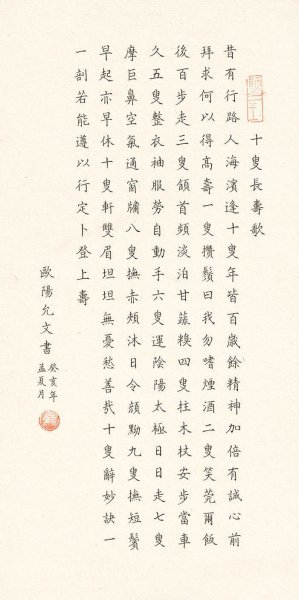 十叟長壽歌
昔有行路人海濱逢十叟年皆百歲餘精神加倍有誠心前
拜求何以得高壽一叟攢鬚曰我勿嗜煙酒二叟笑莞爾飯
後百步走三叟頷首頻淡泊甘蔬糗四叟拄木杖安步當車
久五叟整衣袖服勞自動手六叟運陰陽太極日日走七叟
摩巨鼻空氣通窗牖八叟撫赤頰沐日令顏黝九叟撫短鬢
早起亦早休十叟軒雙眉坦坦無憂愁善哉十叟辭妙訣一
一剖若能遵以行定卜登上壽
歐陽允文書
癸亥年
孟夏月